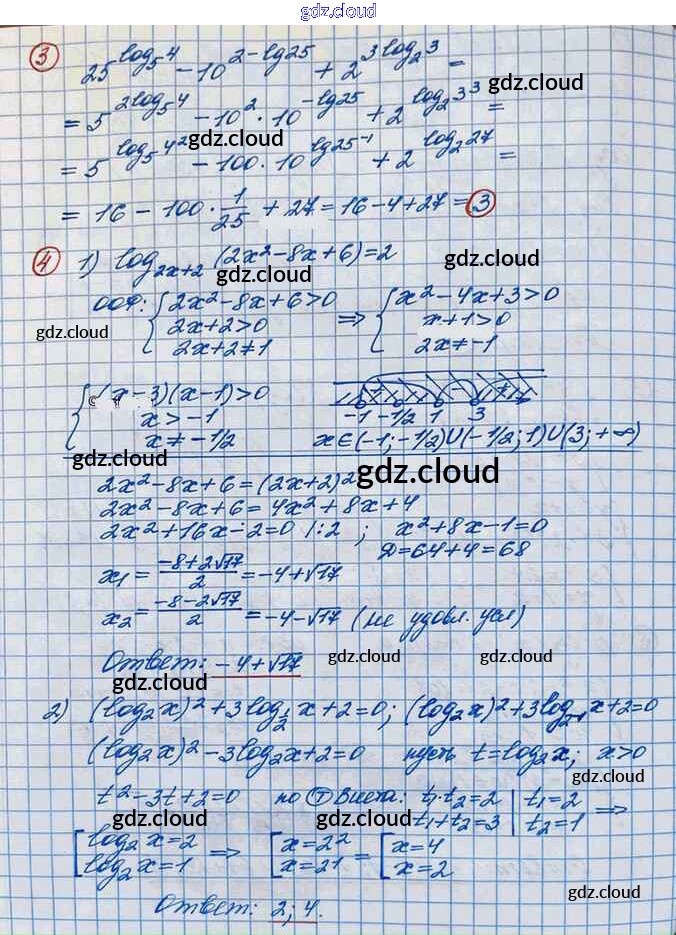 gdz.cloud
gdz.cloud
③ 25^(log₅4) − 10^(2−lg25) + 2^(3log₂3) =
gdz.cloud
= 5^(2log₅4) − 10² · 10^(−lg25) + 2^(log₂3³) =
gdz.cloud
= 5^(log₅4²) − 100 · 10^(lg25⁻¹) + 2^(log₂27) =
gdz.cloud
= 16 − 100 · 1/25 + 27 = 16 − 4 + 27 = 3
④ 1) log₂ₓ₊₂ (2x²−8x+6) = 2
gdz.cloud gdz.cloud
ООФ: { 2x²−8x+6>0 ⇒ { x²−4x+3>0
2x+2>0 x+1>0
gdz.cloud
2x+2≠1 2x≠−1
{ (x−3)(x−1)>0
x>−1 −1 −1/2 1 3
x≠−1/2 x∈(−1;−1/2)∪(−1/2;1)∪(3;+∞)
gdz.cloud gdz.cloud
2x²−8x+6=(2x+2)²
2x²−8x+6=4x²+8x+4
2x²+16x−2=0 |:2 ; x²+8x−1=0
D=64+4=68
x₁ = (−8+2√17)/2 = −4+√17
x₂ = (−8−2√17)/2 = −4−√17 (не удовл. усл)
Ответ: −4+√17
gdz.cloud gdz.cloud
gdz.cloud
2) (log₂x)²+3log_(1/2) x+2=0; (log₂x)²+3log_(2⁻¹) x+2=0
(log₂x)²−3log₂x+2=0 пусть t=log₂x; x>0
gdz.cloud
t²−3t+2=0 по Ⓣ Виета: t₁·t₂=2 | t₁=2 ⇒
gdz.cloud t₁+t₂=3 | t₂=1
[ log₂x=2 ⇒ [ x=2² = [ x=4
log₂x=1 x=2¹ x=2
gdz.cloud
Ответ: 2; 4.
gdz.cloud